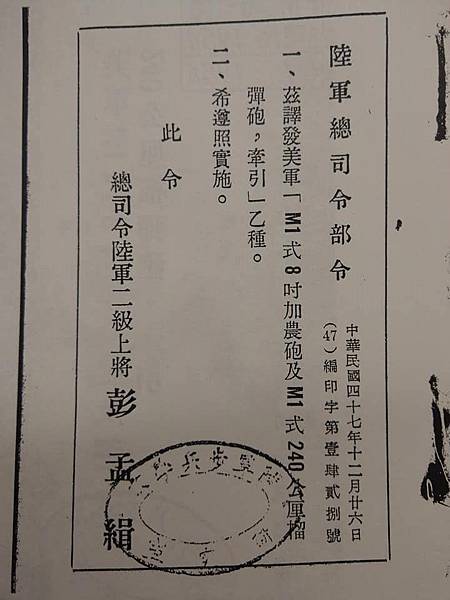 陸軍總司令部令
中華民國四十七年十二月廿六日
(47)編印字第壹肆貳捌號
一、茲譯發美軍「M1式8吋加農砲及M1式240公厘榴
彈砲，牽引」乙種。
二、希遵照實施。
此令
總司令陸軍二級上將彭孟緝